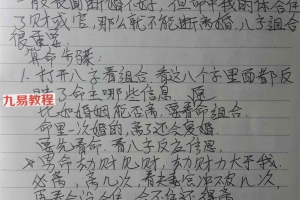 一般表面断婚不好，但命中我的体合住
了财或官，那么就不能断离婚，八字组合
很重要
算命步骤：
1. 打开八字看组合，看这八个字里面都反
映了命主哪些信息。
比如婚姻能否离，要看命组合。
命里一次婚的，离了还会复婚
要先看命，看八字反应信息，
男命劫财见财，劫财力大于我
必离，离几次，看
九易教程